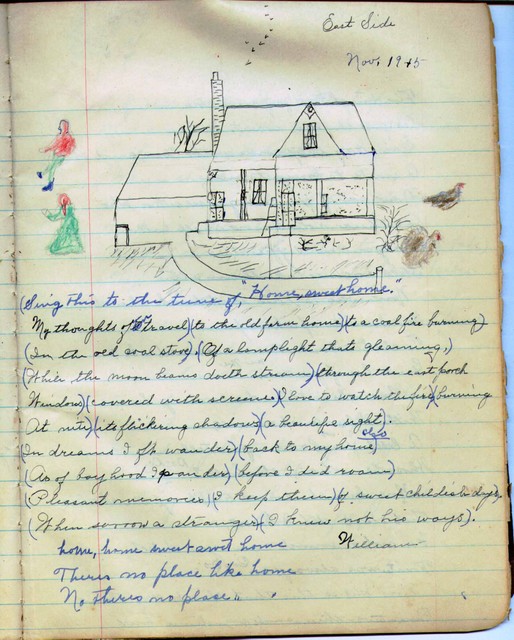 East Side
Nov, 1945
(Sing This to the tune of, "Home, sweet home."
My thoughts oft travel) (to the old farm home) (to a coal fire burning)
(In the old coal stove), (Of a lamplight thats gleaming,)
(While the moon beams doeth stream) (through the east porch
Window) (covered with screens) I love to watch the fire) (burning
At nite) (its flickering shadows) (a beautiful sight).
(In dreams I oft wander) (back to my home)
(As of boy hood I ponder) (before I did roam)
(Pleasant memories) (I keep them) (of sweet childish days,
(When sorrow a stranger) (I knew not his ways).
home, home sweet sweet home
William
Theres no place like home
No theres no place " "